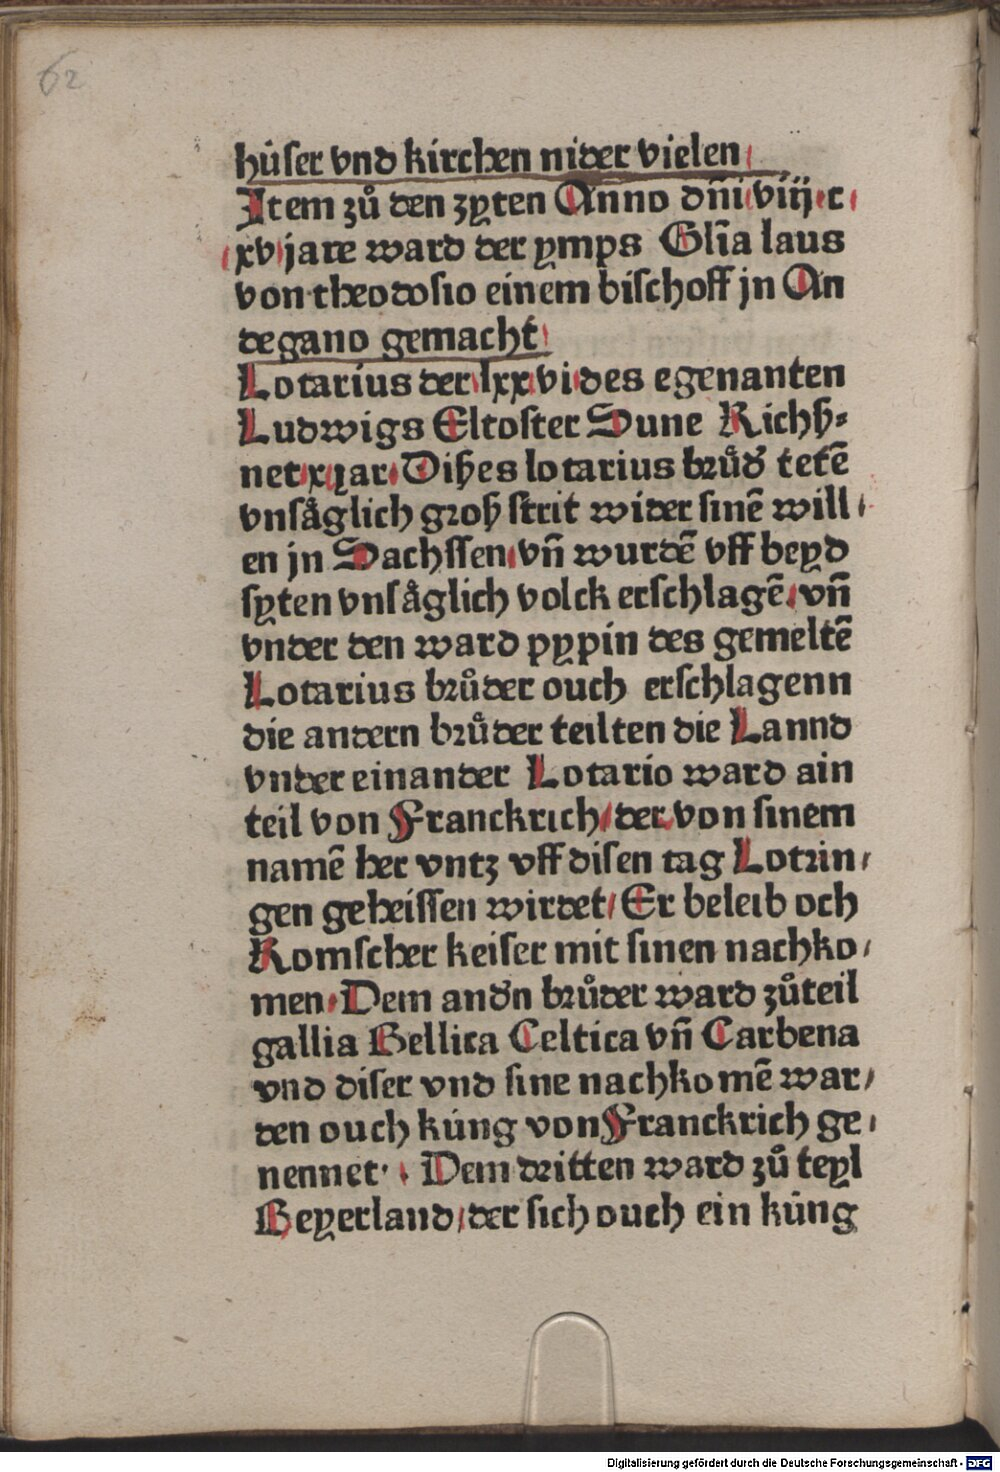 62
hüser vnd kirchen nider vielen
Item zů den zyten Anno dñi viij c
xv jare ward der ymps Gl̃ia laus
von theodosio einem bischoff jn An
degano gemacht
Lotarius der lxxvi des egenanten
Ludwigs Eltoster Sune Richß⸗
net x jar Dißes lotarius brůd̕ tetē
vnsåglich groß strit wider sinē will
en jn Sachssen vñ wurdē vff beyd
syten vnsåglich volck erschlagē vñ
vnder den ward pypin des gemeltē
Lotarius brůder ouch erschlagenn
die andern brůder teilten die Lannd
vnder einander Lotario ward ain
teil von Franckrich der von sinem
namē her vntz vff disen tag Lotrin
gen geheissen wirdet Er beleib och
Romscher keiser mit sinen nachko
men Dem and̕n brůder ward zůteil
gallia Bellica Celtica vñ Carbena
vnd diser vnd sine nachkomē war
den ouch küng von Franckrich ge
nennet Dem dritten ward zů teyl
Beyerland der sich ouch ein küng
Digitalisierung gefördert durch die Deutsche Forschungsgemeinschaft - DFG